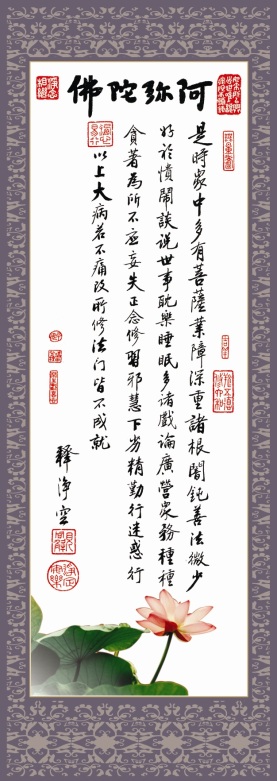 阿弥陀佛
是時眾中多有菩薩業障深重諸根闇鈍善法微少
好於憒鬧談说世事耽樂睡眠多諸戲論廣營眾務種種
貪著為所不應妄失正念修習邪慧下劣精勤行迷惑行
以上大病若不痛改所修法门皆不成就
釋淨空